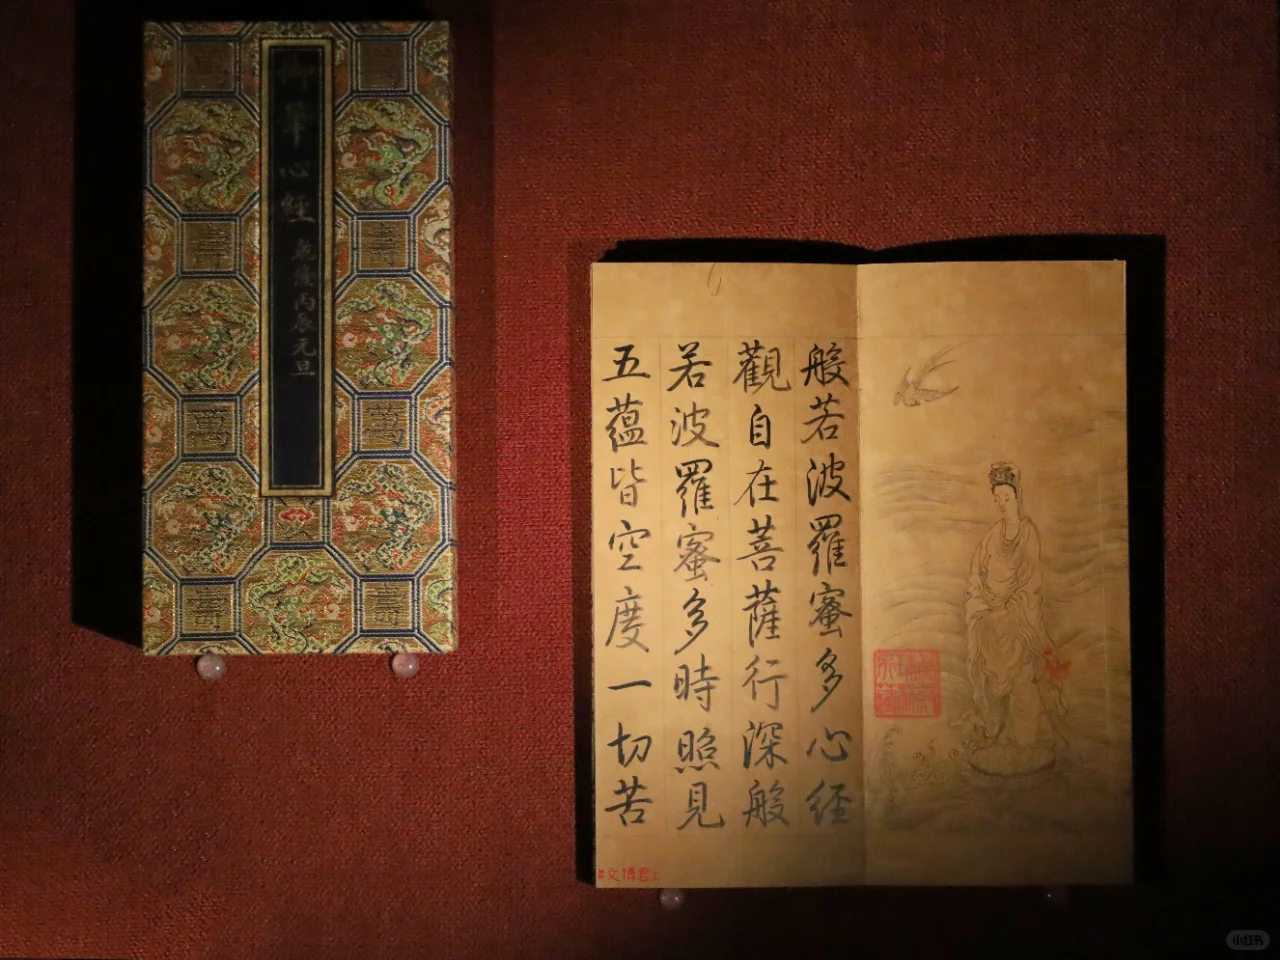 御筆心經
乾隆丙辰元旦
萬
壽
壽
萬
萬
壽
壽
般若波羅蜜多心經
觀自在菩薩行深般
若波羅蜜多時照見
五蘊皆空度一切苦
#文博君
小红书